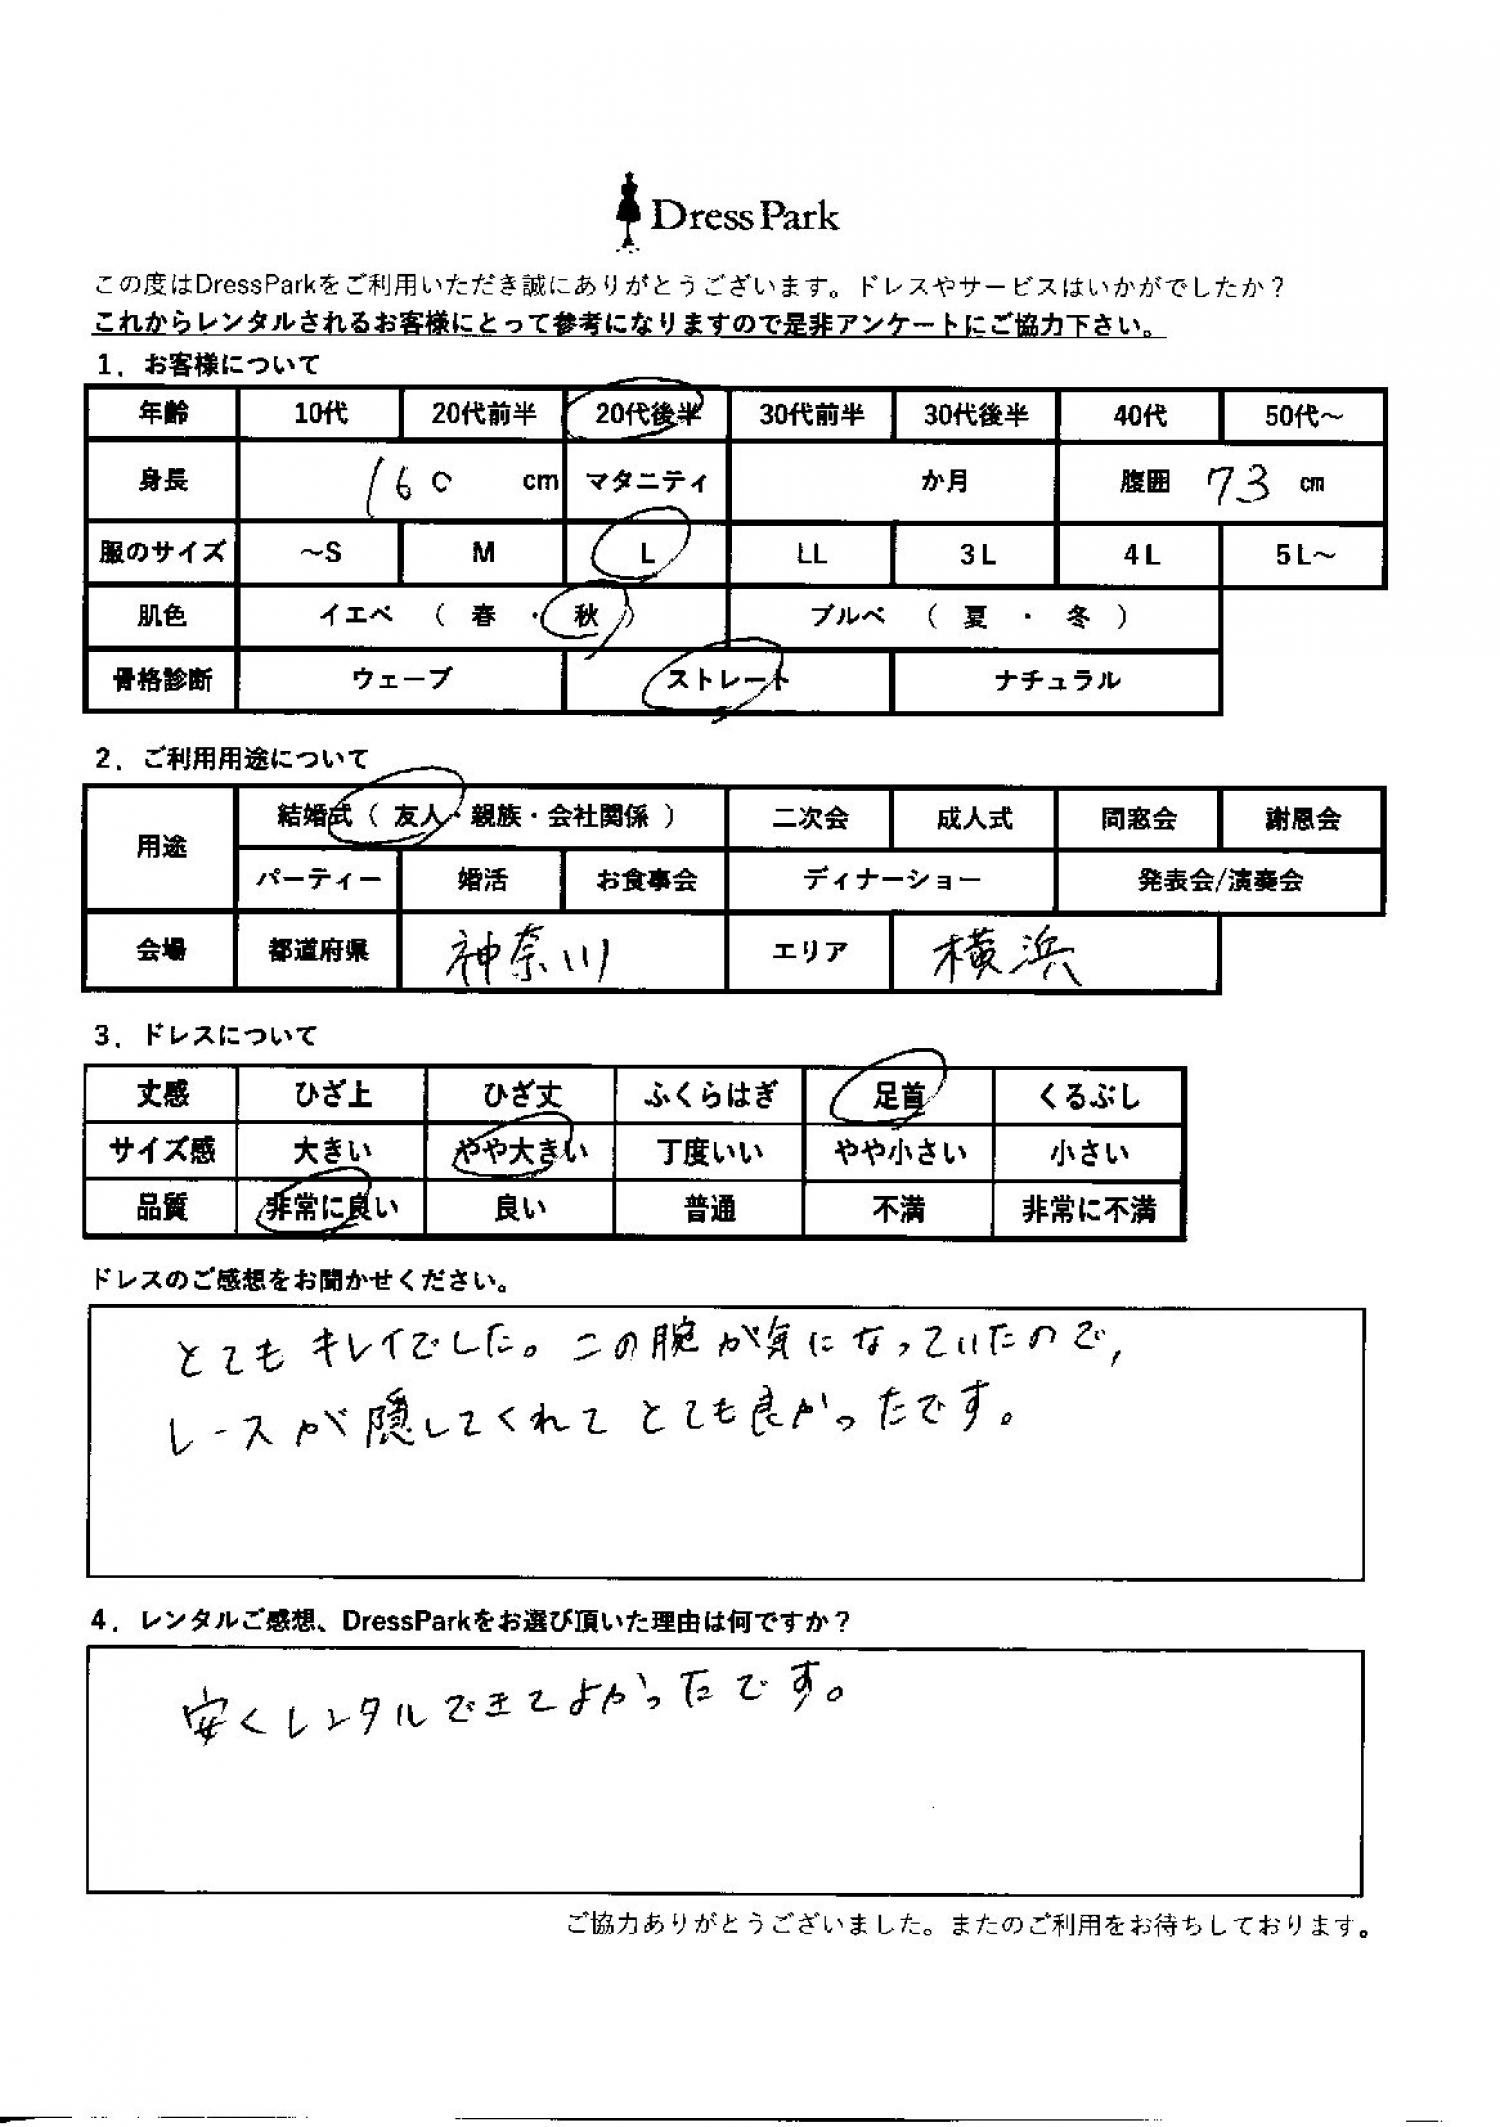 DressPark
この度はDressParkをご利用いただき誠にありがとうございます。ドレスやサービスはいかがでしたか？
これからレンタルされるお客様にとって参考になりますので是非アンケートにご協力下さい。
1．お客様について
年齢 10代 20代前半 20代後半 30代前半 30代後半 40代 50代～
身長 160 cm マタニティ か月 腹囲 73 cm
服のサイズ ～S M L LL 3L 4L 5L～
肌色 イエベ （ 春 ・ 秋 ） ブルベ （ 夏 ・ 冬 ）
骨格診断 ウェーブ ストレート ナチュラル
2．ご利用用途について
用途 結婚式（ 友人・親族・会社関係 ） 二次会 成人式 同窓会 謝恩会
パーティー 婚活 お食事会 ディナーショー 発表会/演奏会
会場 都道府県 神奈川 エリア 横浜
3．ドレスについて
丈感 ひざ上 ひざ丈 ふくらはぎ 足首 くるぶし
サイズ感 大きい やや大きい 丁度いい やや小さい 小さい
品質 非常に良い 良い 普通 不満 非常に不満
ドレスのご感想をお聞かせください。
とてもキレイでした。二の腕が気になっていたので、
レースが隠してくれてとても良かったです。
4．レンタルご感想、DressParkをお選び頂いた理由は何ですか？
安くレンタルできてよかったです。
ご協力ありがとうございました。またのご利用をお待ちしております。